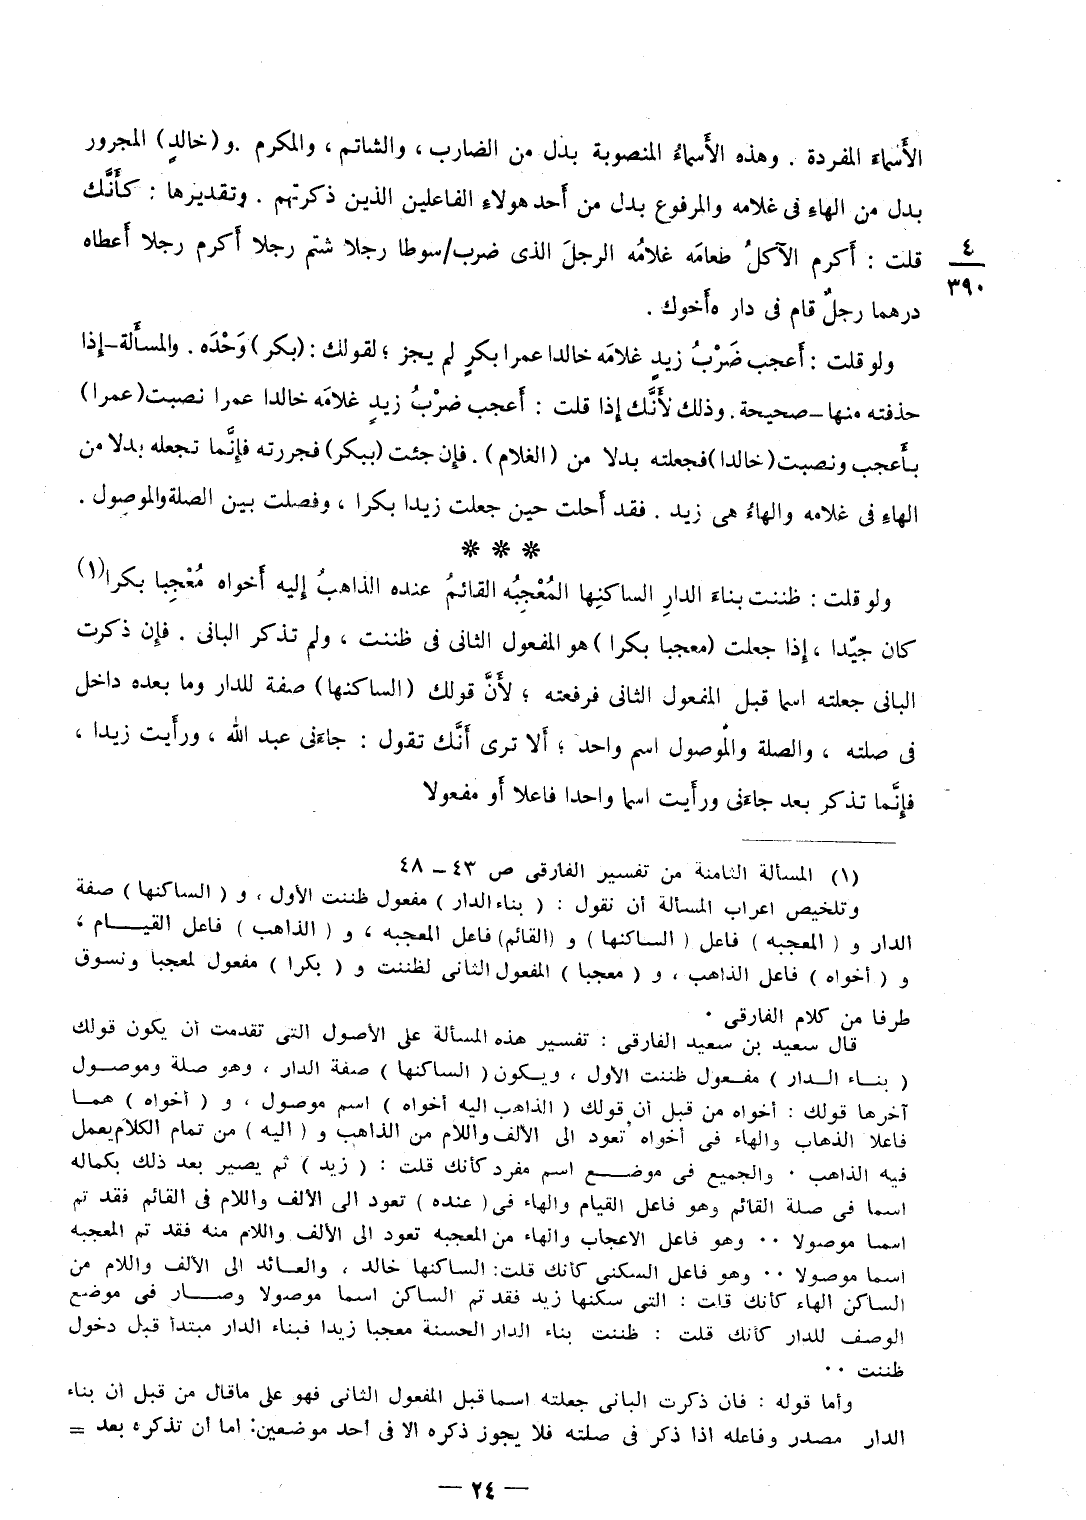 الأَسماء المفردة . وهذه الأَسماءُ المنصوبة بدل من الضارب ، والشاتم ، والمكرم .و(خالدٍ) المجرور
بدل من الهاء فى غلامه والمرفوع بدل من أَحد هولاءِ الفاعلين الذين ذكرتهم . وتقديرها : كأَنَّك
قلت : أَكرم الآكلُ طعامَه غلامُه الرجلَ الذى ضرب/سوطا رجلا شتم رجلا أَكرم رجلا أَعطاه
٤
٣٩٠
درهما رجلٌ قام فى دار ه أَخوك .
ولو قلت : أَعجب ضَرْبُ زيدٍ غلامَه خالدا عمرا بكرٍ لم يجز ؛ لقولك : (بكر) وَحْدَه . والمسأَلة–إذا
حذفته منها–صحيحة. وذلك لأَنَّك إذا قلت : أَعجب ضربُ زيدٍ غلامَه خالدا عمرا نصبت (عمرا)
بأَعجب ونصبت (خالدا) فجعلته بدلا من (الغلام) . فإن جئت (ببكر) فجررته فإِنَّما تجعله بدلا من
الهاءِ فى غلامه والهاءُ هى زيد . فقد أَحلت حين جعلت زيدا بكرا ، وفصلت بين الصلة والموصول .
* * *
ولو قلت : ظننت بناءَ الدارِ الساكنِها المُعْجِبُه القائمُ عنده الذاهبُ إليه أَخواه مُعْجِبا بكرا(١)
كان جيّدا ، إذا جعلت (معجبا بكرا) هو المفعول الثانى فى ظننت ، ولم تذكر البانى . فإِن ذكرت
البانى جعلته اسما قبل المفعول الثانى فرفعته ؛ لأَنَّ قولك (الساكنها) صفة للدار وما بعده داخل
فى صلته ، والصلة والموصول اسم واحد ؛ أَلا ترى أَنَّك تقول : جاءَنى عبد الله ، ورأَيت زيدا ،
فإِنَّما تذكر بعد جاءَنى ورأَيت اسما واحدا فاعلا أَو مفعولا
(١) المسألة الثامنة من تفسير الفارقى ص ٤٣ – ٤٨
وتلخيص اعراب المسألة أن نقول : ( بناء الدار ) مفعول ظننت الأول ، و ( الساكنها ) صفة
الدار و ( المعجبه ) فاعل ( الساكنها ) و (القائم) فاعل المعجبه ، و ( الذاهب ) فاعل القيام ،
و ( أخواه ) فاعل الذاهب ، و ( معجبا ) المفعول الثانى لظننت و ( بكرا ) مفعول لمعجبا ونسوق
طرفا من كلام الفارقى .
قال سعيد بن سعيد الفارقى : تفسير هذه المسألة على الأصول التى تقدمت أن يكون قولك
( بناء الدار ) مفعول ظننت الأول ، ويكون ( الساكنها ) صفة الدار ، وهو صلة وموصول
آخرها قولك : أخواه من قبل أن قولك ( الذاهب اليه أخواه ) اسم موصول ، و ( أخواه ) هما
فاعلا الذهاب والهاء فى أخواه تعود الى الألف واللام من الذاهب و ( اليه ) من تمام الكلام يعمل
فيه الذاهب . والجميع فى موضع اسم مفرد كأنك قلت : ( زيد ) ثم يصير بعد ذلك بكماله
اسما فى صلة القائم وهو فاعل القيام والهاء فى ( عنده ) تعود الى الألف واللام فى القائم فقد تم
اسما موصولا .. وهو فاعل الاعجاب والهاء من المعجبه تعود الى الألف واللام منه فقد تم المعجبه
اسما موصولا .. وهو فاعل السكنى كأنك قلت: الساكنها خالد ، والعائد الى الألف واللام من
الساكن الهاء كأنك قلت : التى سكنها زيد فقد تم الساكن اسما موصولا وصار فى موضع
الوصف للدار كأنك قلت : ظننت بناء الدار الحسنة معجبا زيدا فبناء الدار مبتدأ قبل دخول
ظننت ..
وأما قوله : فان ذكرت البانى جعلته اسما قبل المفعول الثانى فهو على ماقال من قبل أن بناء
الدار مصدر وفاعله اذا ذكر فى صلته فلا يجوز ذكره الا فى أحد موضعين: اما أن تذكره بعد =
— ٢٤ —